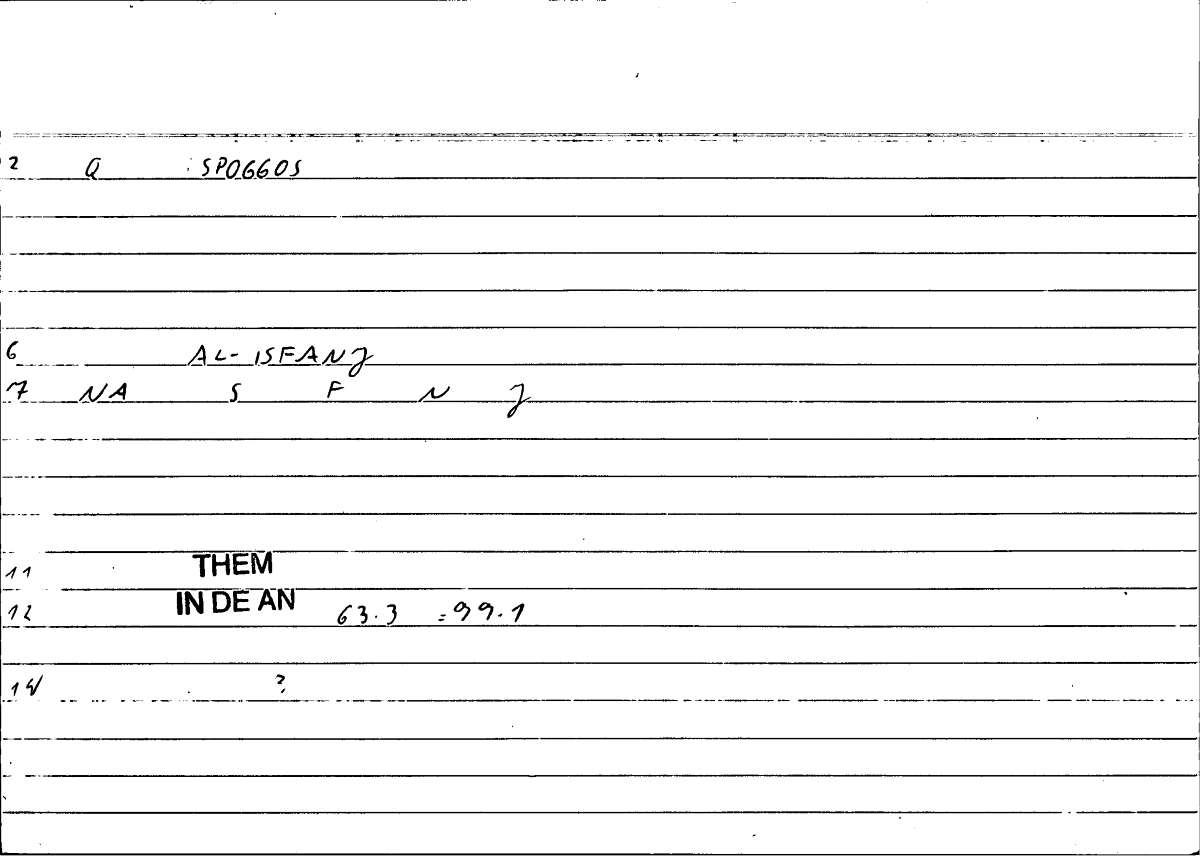 2 Q : SPOGGOS
6 AL-ISFANJ
7 NA S F N J
11 THEM
12 IN DE AN 63.3 =99.1
14 ?